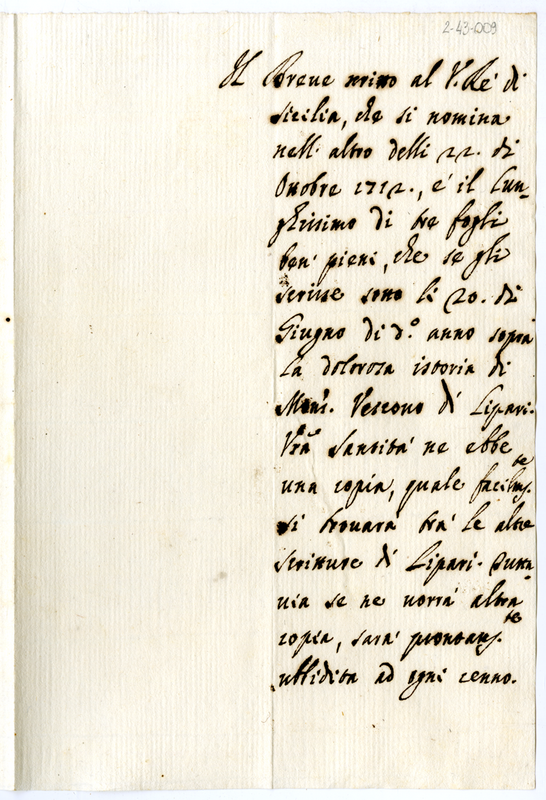 2-43-D09
Il Breve scritto al V. Ré di
Sicilia, che si nomina
nell' altro delli 22. di
Ottobre 1712., é il lun-
ghissimo di tre fogli
ben' pieni, che se gli
scrisse sotto li 20. di
Giugno di d.º anno sopra
la dolorosa istoria di
Mons. Vescovo di Lipari.
Vrã Santità ne ebbe
una copia, quale facilm.te
si trovarà trà le altre
scritture di Lipari. Tutta
via se ne vorrà altra
copia, sarà prontam.te
ubbidita ad ogni cenno.